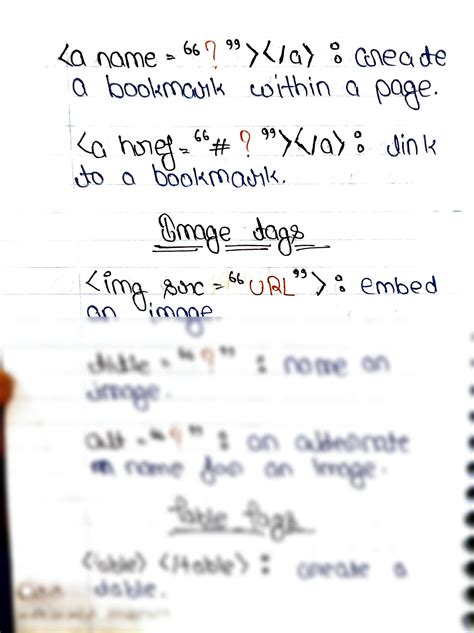 <a name = "?"></a> : create
a bookmark within a page.
<a href = "# ?"></a> : link
to a bookmark.
Image tags
<img src = "URL"> : embed
an image
title = "?" : name an
image.
alt = "?" : an alternate
name for an image.
Table Tags
<table> </table> : create a
table.